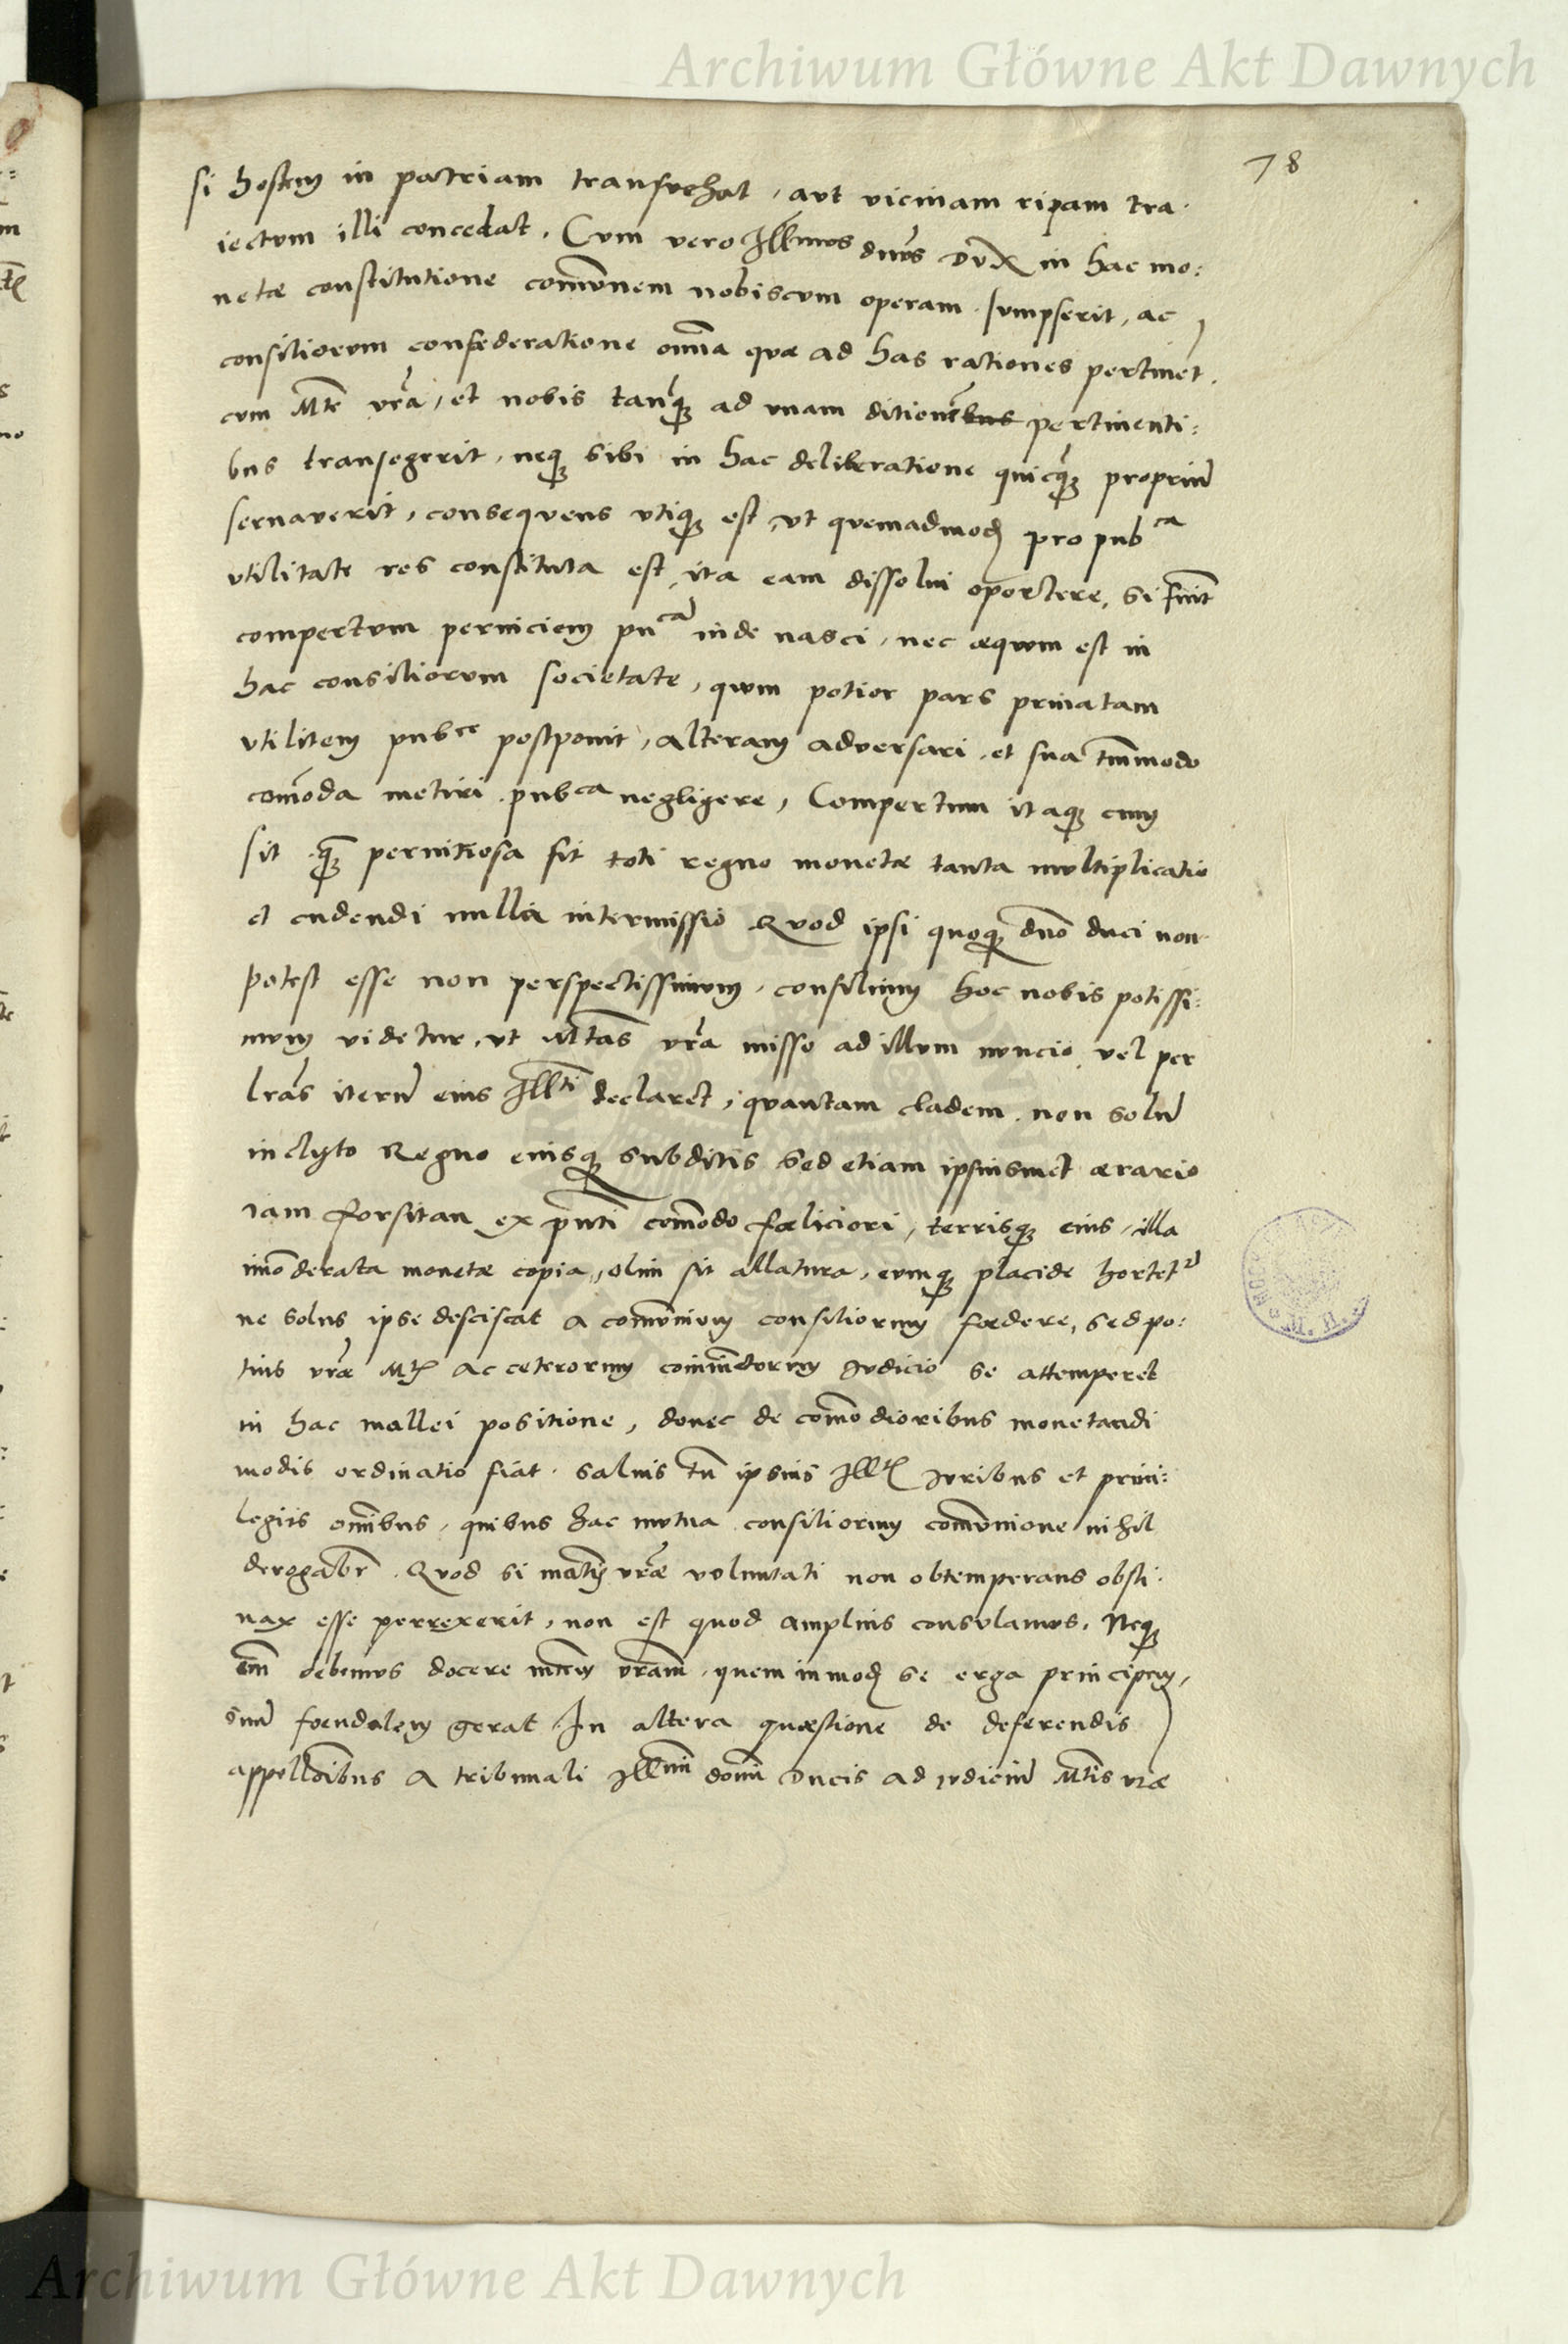 Archiwum Główne Akt Dawnych
78
si hostem in patriam transvehat, aut vicinam ripam tra-
iectum illi concedat. Cum vero Illmus dnus Dux in hac mo:
netæ constitutione comunem nobiscum operam sumpserit, ac
consiliorum confæderatione omnia quæ ad has rationes pertinet.
cum Mte vrã, et nobis tanq̃ ad unam ditionẽ pertinenti:
bus transegerit, neq; sibi in hac deliberatione quicq̃ propriũ
servaverit, consequens utiq; est, ut quemadmod pro pubca
utilitate res constituta est, ita eam dissolvi oportere, si
compertum perniciem pucã inde nasci, nec æquum est in
hac consiliorum societate, quum potior pars privatam
utilitem pubce postponit, alteram adversari, et sua tmmodo
comoda metiri pubca negligere, Compertum itaq; cum
sit q̃ pernitiosa sit toti regno monetæ tanta multiplicatio
et cudendi nulla intermissio Quod ipsi quoq; dno duci non
potest esse non perspectissimum, consilium hoc nobis potissi:
mum videtur, ut Mtas vrã misso ad illum nuncio, vel per
lras iterũ eius Illti declaret, quantam cladem, non solũ
inclyto Regno eiusq; subditis sed etiam ipsiusmet ærario
iam forsitan ex pñti comodo fæliciori, terrisq; eius, illa
imoderata monetæ copia, olim sit allatura, eumq; placide hortetr
ne solus ipse desciscat a comunium consiliorum fædere, sed po:
tius vræ Mtis ac ceterorum iudicio se attemperet
in hac mallei positione, donec de comodioribus monetandi
modis ordinatio fiat. salvis tñ ipsius Illtis iuribus et privi:
legiis omibus, quibus hac mutua consiliorum comunione nihil
derogabr. Quod si matis vræ voluntati non obtemperans obsti-
nax esse perrexerit, non est quod amplius consulamus. Neq;
em debemus docere mtem vram, quem in mod se erga principem,
suũ foendalem gerat In altera quæstione de deferendis
appellõibus a tribunali Illmi domi Ducis ad iudiciũ Mtis vræ
Archiwum Główne Akt Dawnych